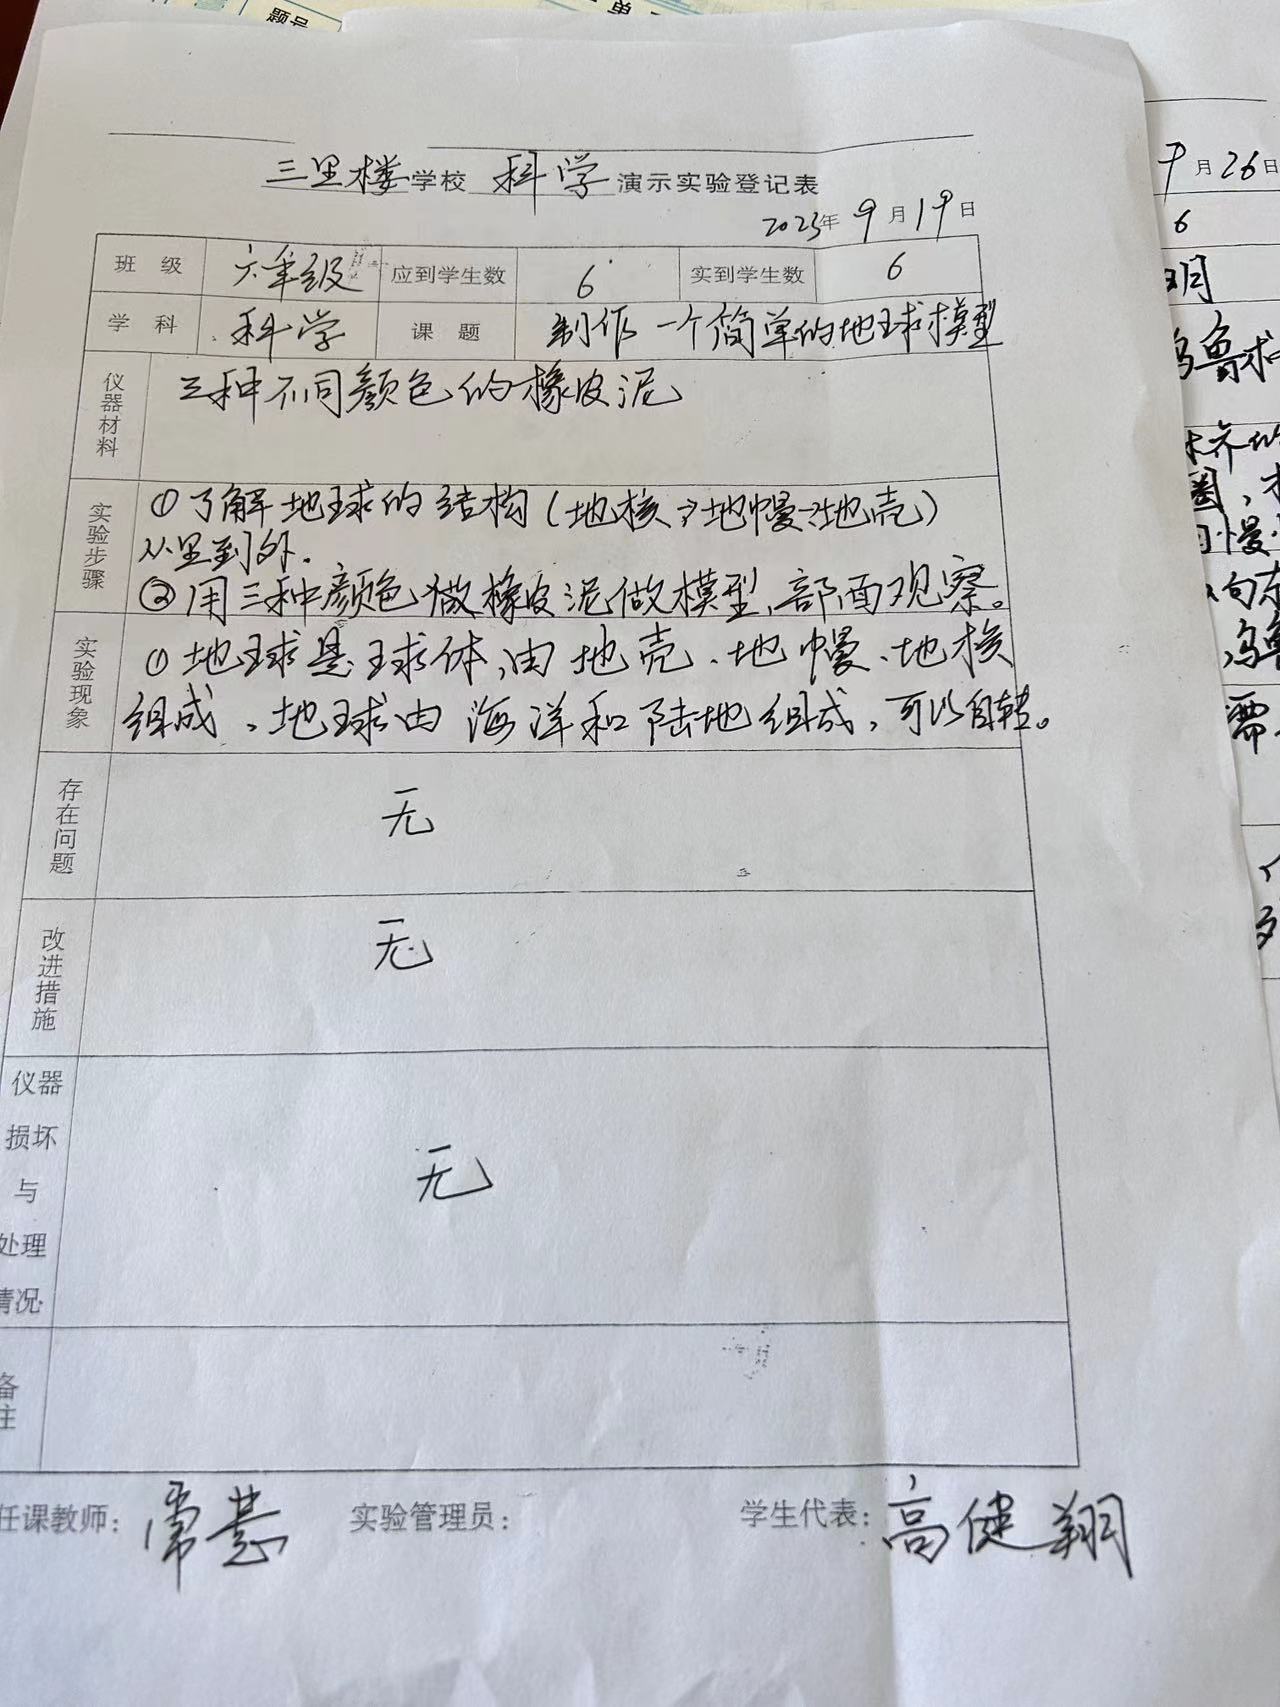 三里楼学校 科学 演示实验登记表
2023年 9月19日
班 级 六年级 应到学生数 6 实到学生数 6
学 科 科学 课 题 制作一个简单的地球模型
仪器材料 三种不同颜色的橡皮泥
实验步骤 ①了解地球的结构(地核→地幔→地壳)
从里到外.
②用三种颜色做橡皮泥做模型,部面观察。
实验现象 ①地球是球体,由地壳、地幔、地核
组成、地球由海洋和陆地组成,可以自转。
存在问题 无
改进措施 无
仪器
损坏
与
处理
情况
无
备注
任课教师: 常慧 实验管理员: 学生代表: 高健翔
9月26日
6